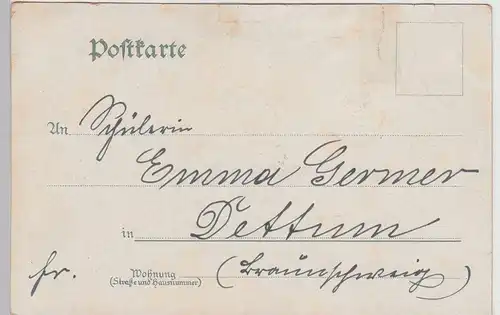 Postkarte
An Schülerin
Emma Germer
in Dettum
fr. Wohnung (Braunschweig)
(Straße und Hausnummer)